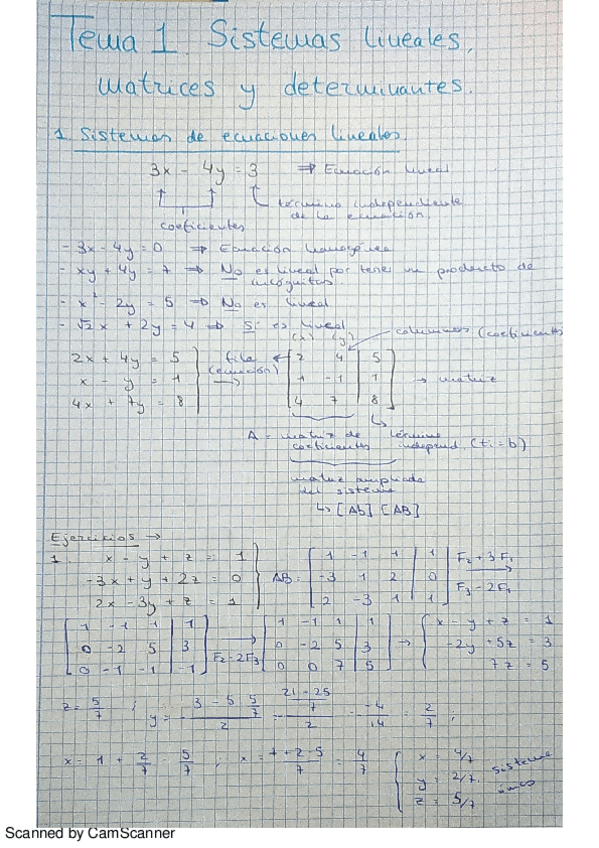 Tema 1. Sistemas lineales,
matrices y determinantes.
1. Sistemas de ecuaciones lineales.
3x - 4y = 3 ⇒ Ecuación lineal
coeficientes
término independiente
de la ecuación
- 3x - 4y = 0 ⇒ Ecuación homogénea
- xy + 4y = 7 ⇒ No es lineal por tener un producto de
incógnitas
- x² - 2y = 5 ⇒ No es lineal
- √2 x + 2y = 4 ⇒ Sí es lineal
(x) (y) columnas (coeficientes)
2x + 4y = 5 fila (ecuación) 2 4 5
x - y = 1 → 1 -1 1 → matriz
4x + 7y = 8 4 7 8
A = matriz de coeficientes término independ. (t.i = b)
matriz ampliada
del sistema
↳ [Ab] [AB]
Ejercicios →
1. x - y + z = 1 1 -1 1 1 F₂ + 3F₁
-3x + y + 2z = 0 AB = -3 1 2 0 →
2x - 3y + z = 1 2 -3 1 1 F₃ - 2F₁
1 -1 1 1 1 -1 1 1 x - y + z = 1
0 -2 5 3 → 0 -2 5 3 → -2y + 5z = 3
0 -1 -1 -1 F₂-2F₃ 0 0 7 5 7z = 5
z = 5/7 ; y = - (3 - 5 5/7)/2 = - ((21 - 25)/7)/2 = - -4/14 = 2/7 ;
x = 1 + 2/7 - 5/7 ; x = (7 + 2 - 5)/7 = 4/7
x = 4/7
y = 2/7 sistema
z = 5/7
Scanned by CamScanner